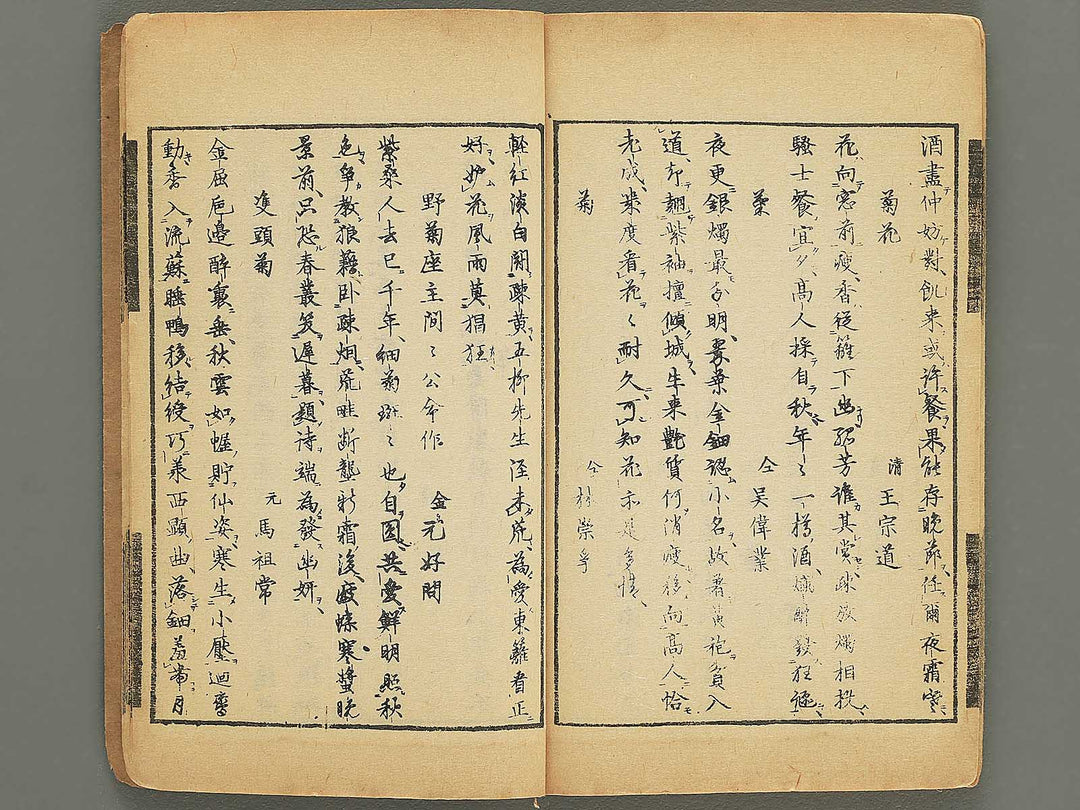 酒盡何妨對飢来或許餐果能存晩節任爾夜霜寒
菊花 清 王宗道
花向窓前瘦香従籬下幽孤芳誰其賞疎放懶相投
騒士餐宜夕高人採自秋年〻一樽酒爛酔發狂謳
菊 仝 吴偉業
夜更銀燭最分明翠葉金鈿認小名故著黄袍貪入
道却翻紫袖擅傾城生来艶質何消瘦移向高人恰
老成幾度看花〻耐久可知花亦是多情
菊 仝 林崇孚
軽紅淡白間疎黄五柳先生逕未荒為愛東籬看正
好妒花風雨莫猖狂
野菊座主閒〻公命作 金 元好問
紫桑人去已千年細菊斑〻也自圓共愛鮮明照秋
色争教狼藉臥疎烟荒畦断壟新霜後瘦蝶寒螿晩
景前只恐春叢笑遲暮題詩端為發幽妍
隻頭菊 元 馬祖常
金屈巵邉酔裏垂秋雲如幄貯仙姿寒生小靨迴鸞
動香入流蘇睡鴨移結綬巧承西顥曲落鈿羞帯月